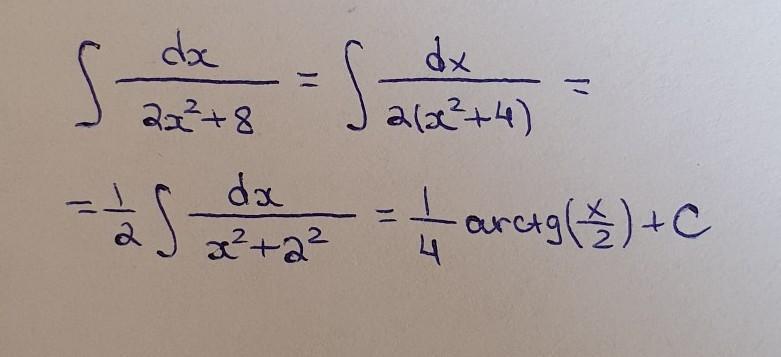 ∫ dx/(2x²+8) = ∫ dx/(2(x²+4)) =
= 1/2 ∫ dx/(x²+2²) = 1/4 arctg(x/2) + C